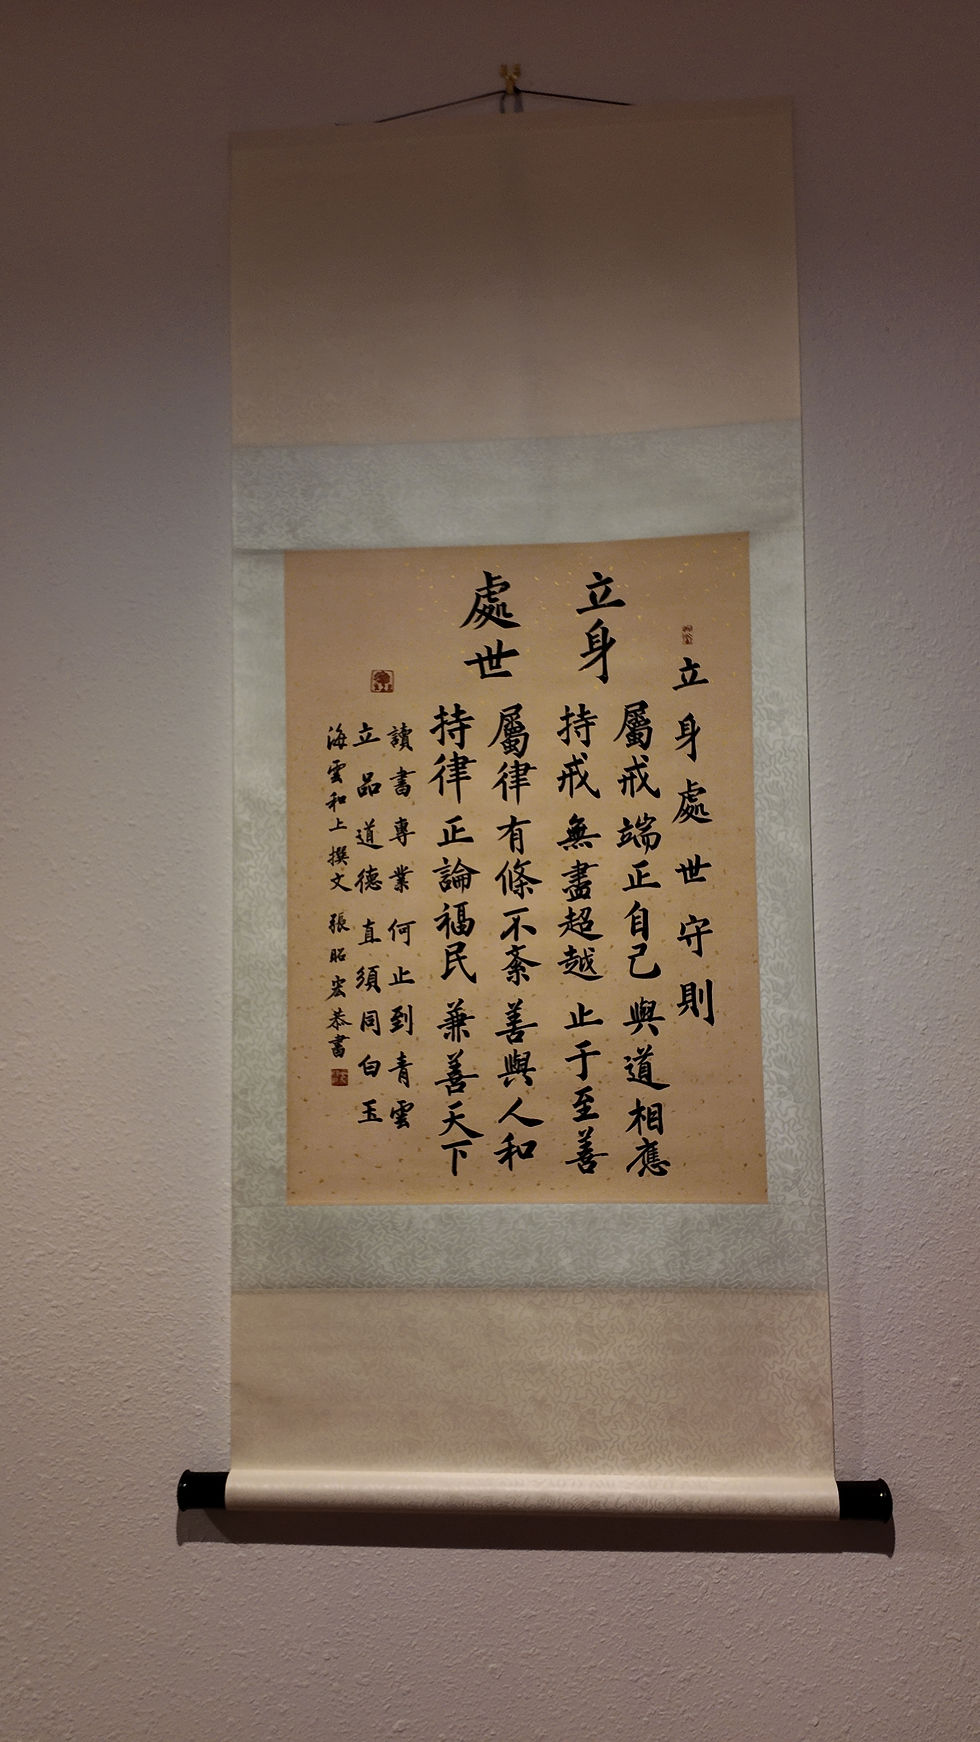 立身處世守則
立身
屬戒 端正自己 與道相應
持戒 無盡超越 止于至善
處世
屬律 有條不紊 善與人和
持律 正論福民 兼善天下
讀書專業何止到青雲
立品道德直須同白玉
海雲和上撰文 張昭宏恭書